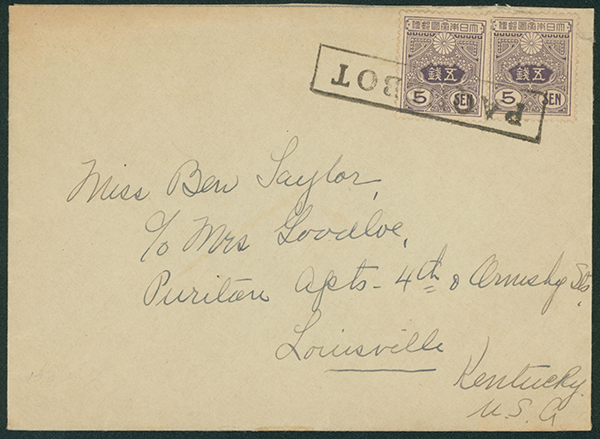 大日本帝國郵便
五錢
5 SEN
大日本帝國郵便
五錢
5 SEN
PAQUEBOT
Miss Ben Taylor,
c/o Mrs Goodloe,
Puritan Apts - 4th & Ormsby Sts,
Louisville
Kentucky.
U.S.A